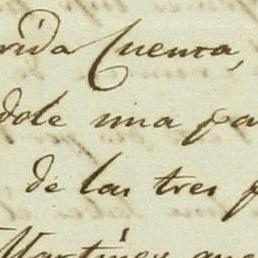 rida Cuenca,
dole una pa
de las tres p
Martines que